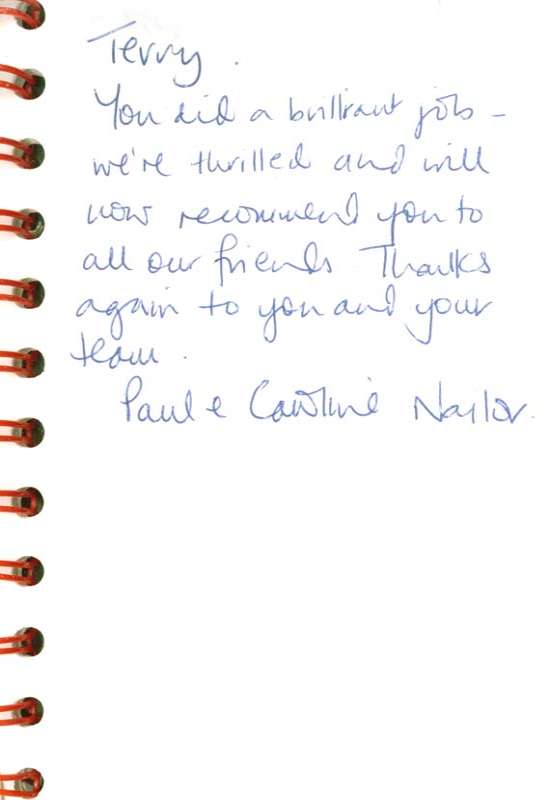 Terry.
You did a brilliant job -
we're thrilled and will
now recommend you to
all our friends Thanks
again to you and your
team.
Paul & Caroline Naylor.